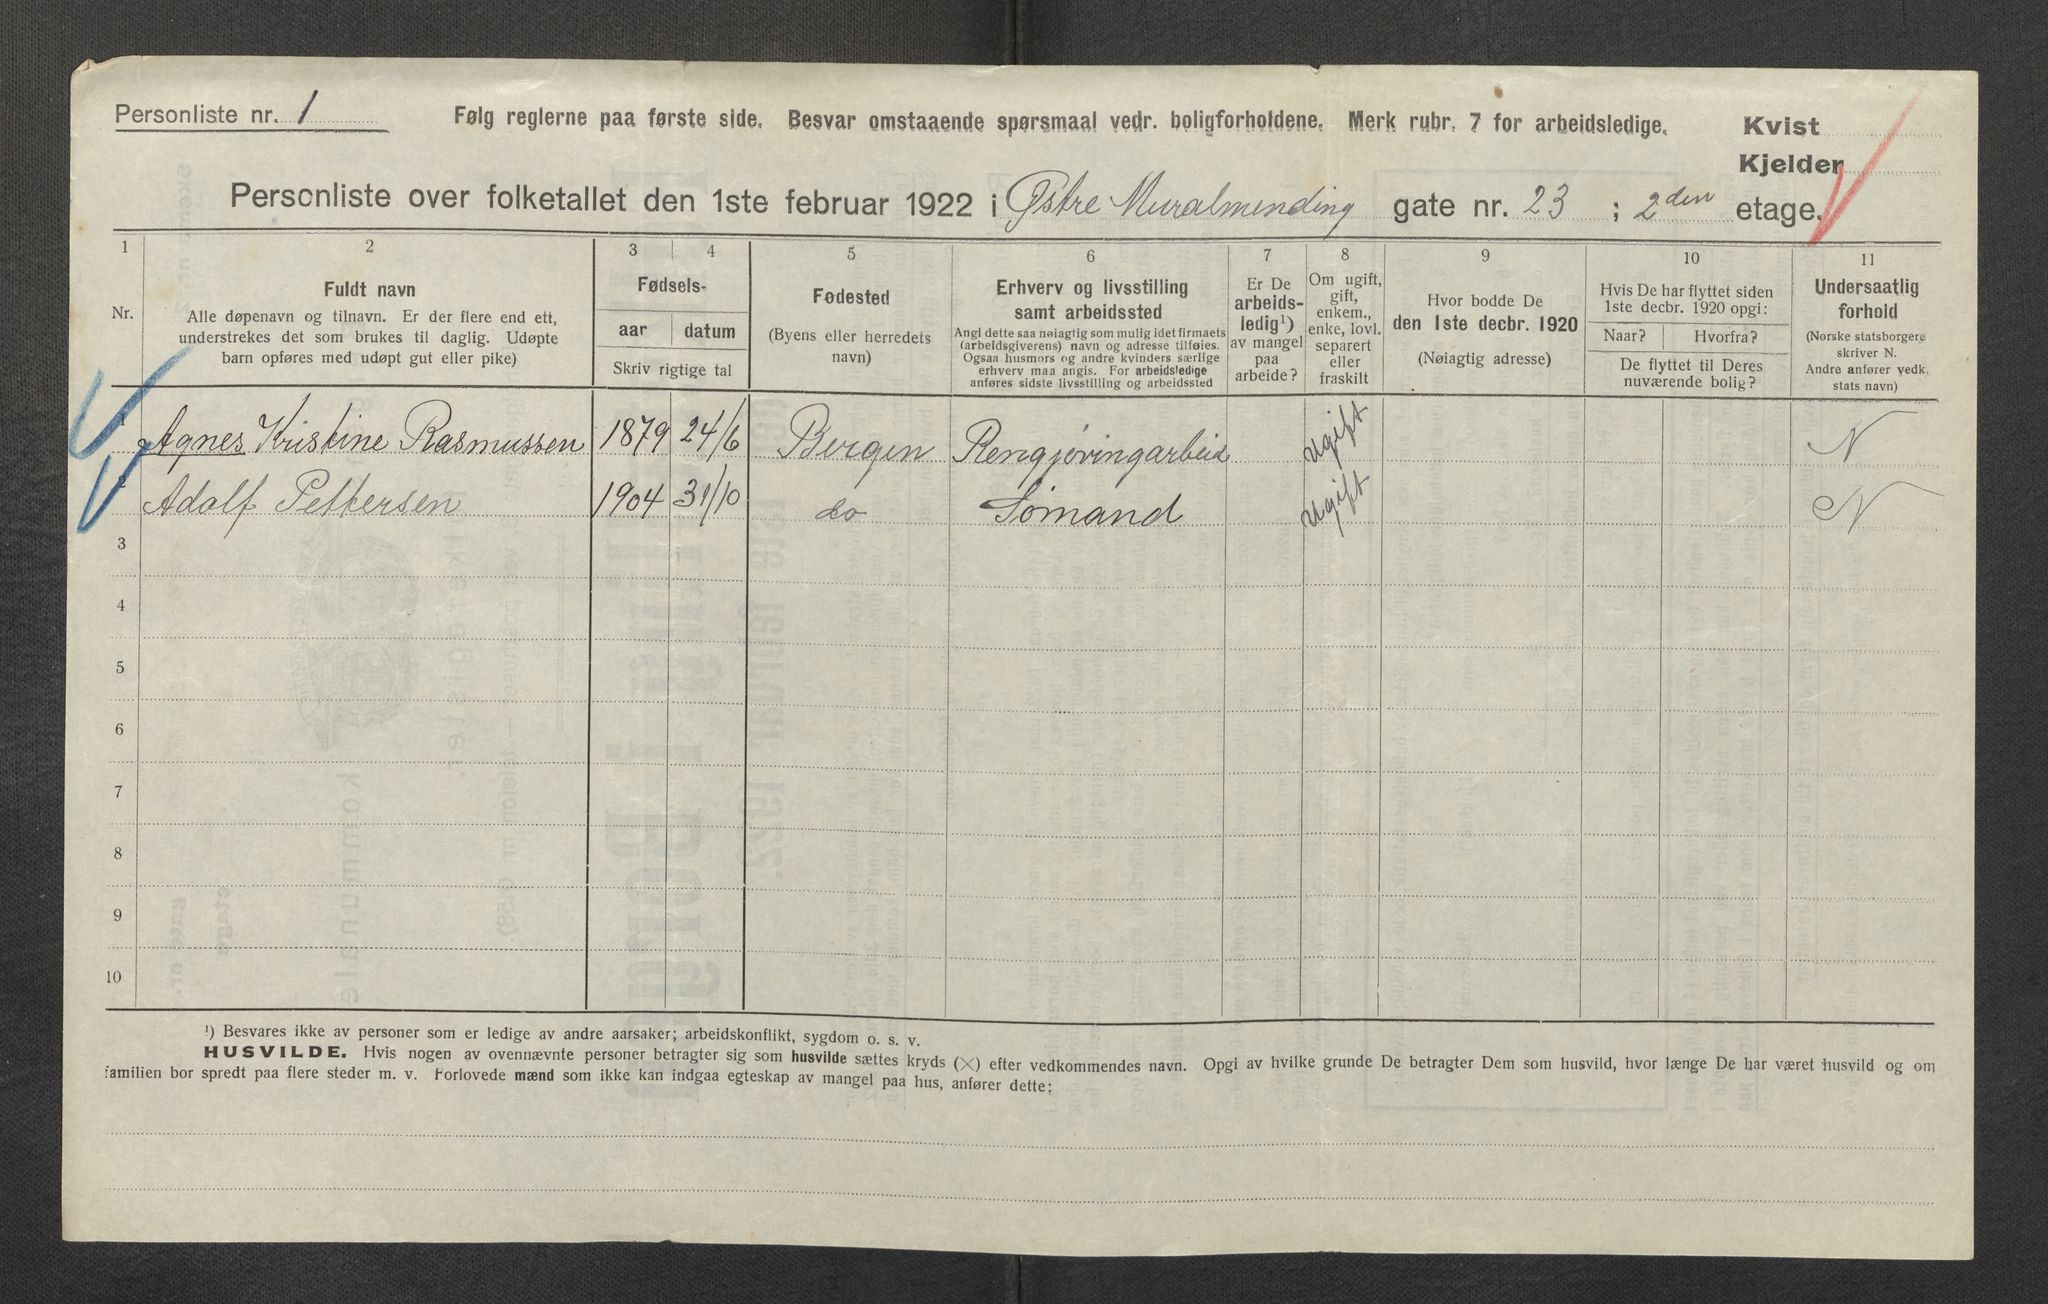 Personliste nr. 1
Følg reglerne paa første side. Besvar omstaaende spørsmaal vedr. boligforholdene. Merk rubr. 7 for arbeidsledige.
Kvist
Kjelder
Personliste over folketallet den 1ste februar 1922 i Østre Muralmending gate nr. 23 ; 2den etage.
1 2 3 4 5 6 7 8 9 10 11
Nr.
Fuldt navn
Alle døpenavn og tilnavn. Er der flere end ett,
understrekes det som brukes til daglig. Udøpte
barn opføres med udøpt gut eller pike)
Fødsels-
aar datum
Skriv rigtige tal
Fødested
(Byens eller herredets
navn)
Erhverv og livsstilling
samt arbeidssted
Angi dette saa nøiagtig som mulig idet firmaets
(arbeidsgiverens) navn og adresse tilføies.
Ogsaa husmors og andre kvinders særlige
erhverv maa angis. For arbeidsledige
anføres sidste livsstilling og arbeidssted
Er De
arbeids-
ledig¹)
av mangel
paa
arbeide?
Om ugift,
gift,
enkem.,
enke, lovl.
separert
eller
fraskilt
Hvor bodde De
den 1ste decbr. 1920
(Nøiagtig adresse)
Hvis De har flyttet siden
1ste decbr. 1920 opgi:
Naar? Hvorfra?
De flyttet til Deres
nuværende bolig?
Undersaatlig
forhold
(Norske statsborgere
skriver N.
Andre anfører vedk.
stats navn)
1 Agnes Kristine Rasmussen 1879 24/6 Bergen Rengjøringarbeid ugift N
2 Adolf Pettersen 1904 31/10 do Sømand ugift N
3
4
5
6
7
8
9
10
¹) Besvares ikke av personer som er ledige av andre aarsaker; arbeidskonflikt, sygdom o. s. v.
HUSVILDE. Hvis nogen av ovennævnte personer betragter sig som husvilde sættes kryds (×) efter vedkommendes navn. Opgi av hvilke grunde De betragter Dem som husvild, hvor længe De har været husvild og om
familien bor spredt paa flere steder m. v. Forlovede mænd som ikke kan indgaa egteskap av mangel paa hus, anfører dette: